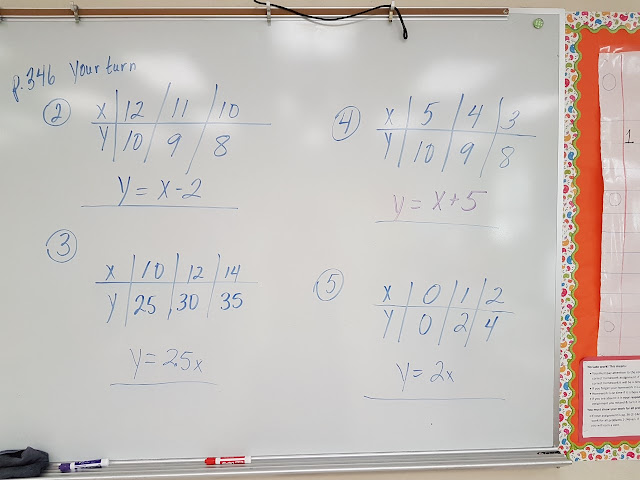 p.346 Your turn
② X 12 11 10
Y 10 9 8
y = x - 2
③ X 10 12 14
Y 25 30 35
y = 2.5x
④ X 5 4 3
Y 10 9 8
y = x + 5
⑤ X 0 1 2
Y 0 2 4
y = 2x
1